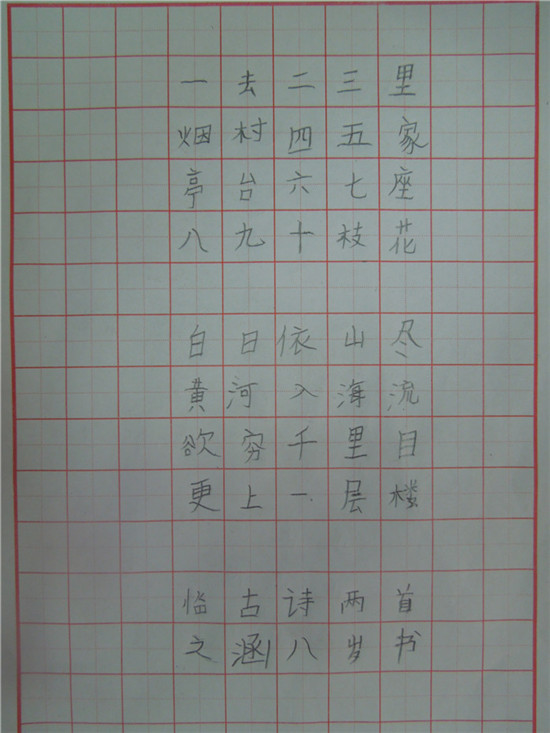 一去二三里
烟村四五家
亭台六七座
八九十枝花
白日依山尽
黄河入海流
欲穷千里目
更上一层楼
临古诗两首
之涵八岁书